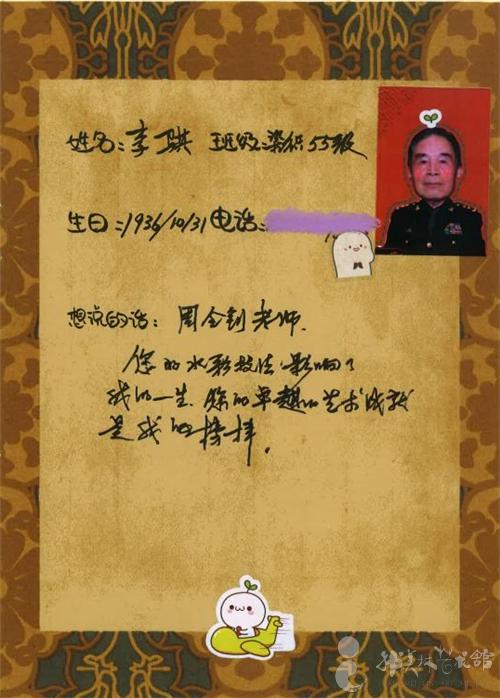 姓名：李骐 班级：染织55级
生日：1936/10/31 电话：
想说的话：周令钊老师.
您的水彩技法，影响了
我的一生.您的卓越的艺术成就
是我的榜样.